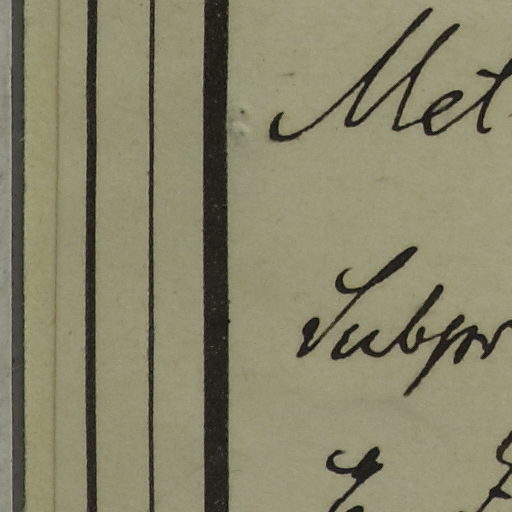 Met
Subpr